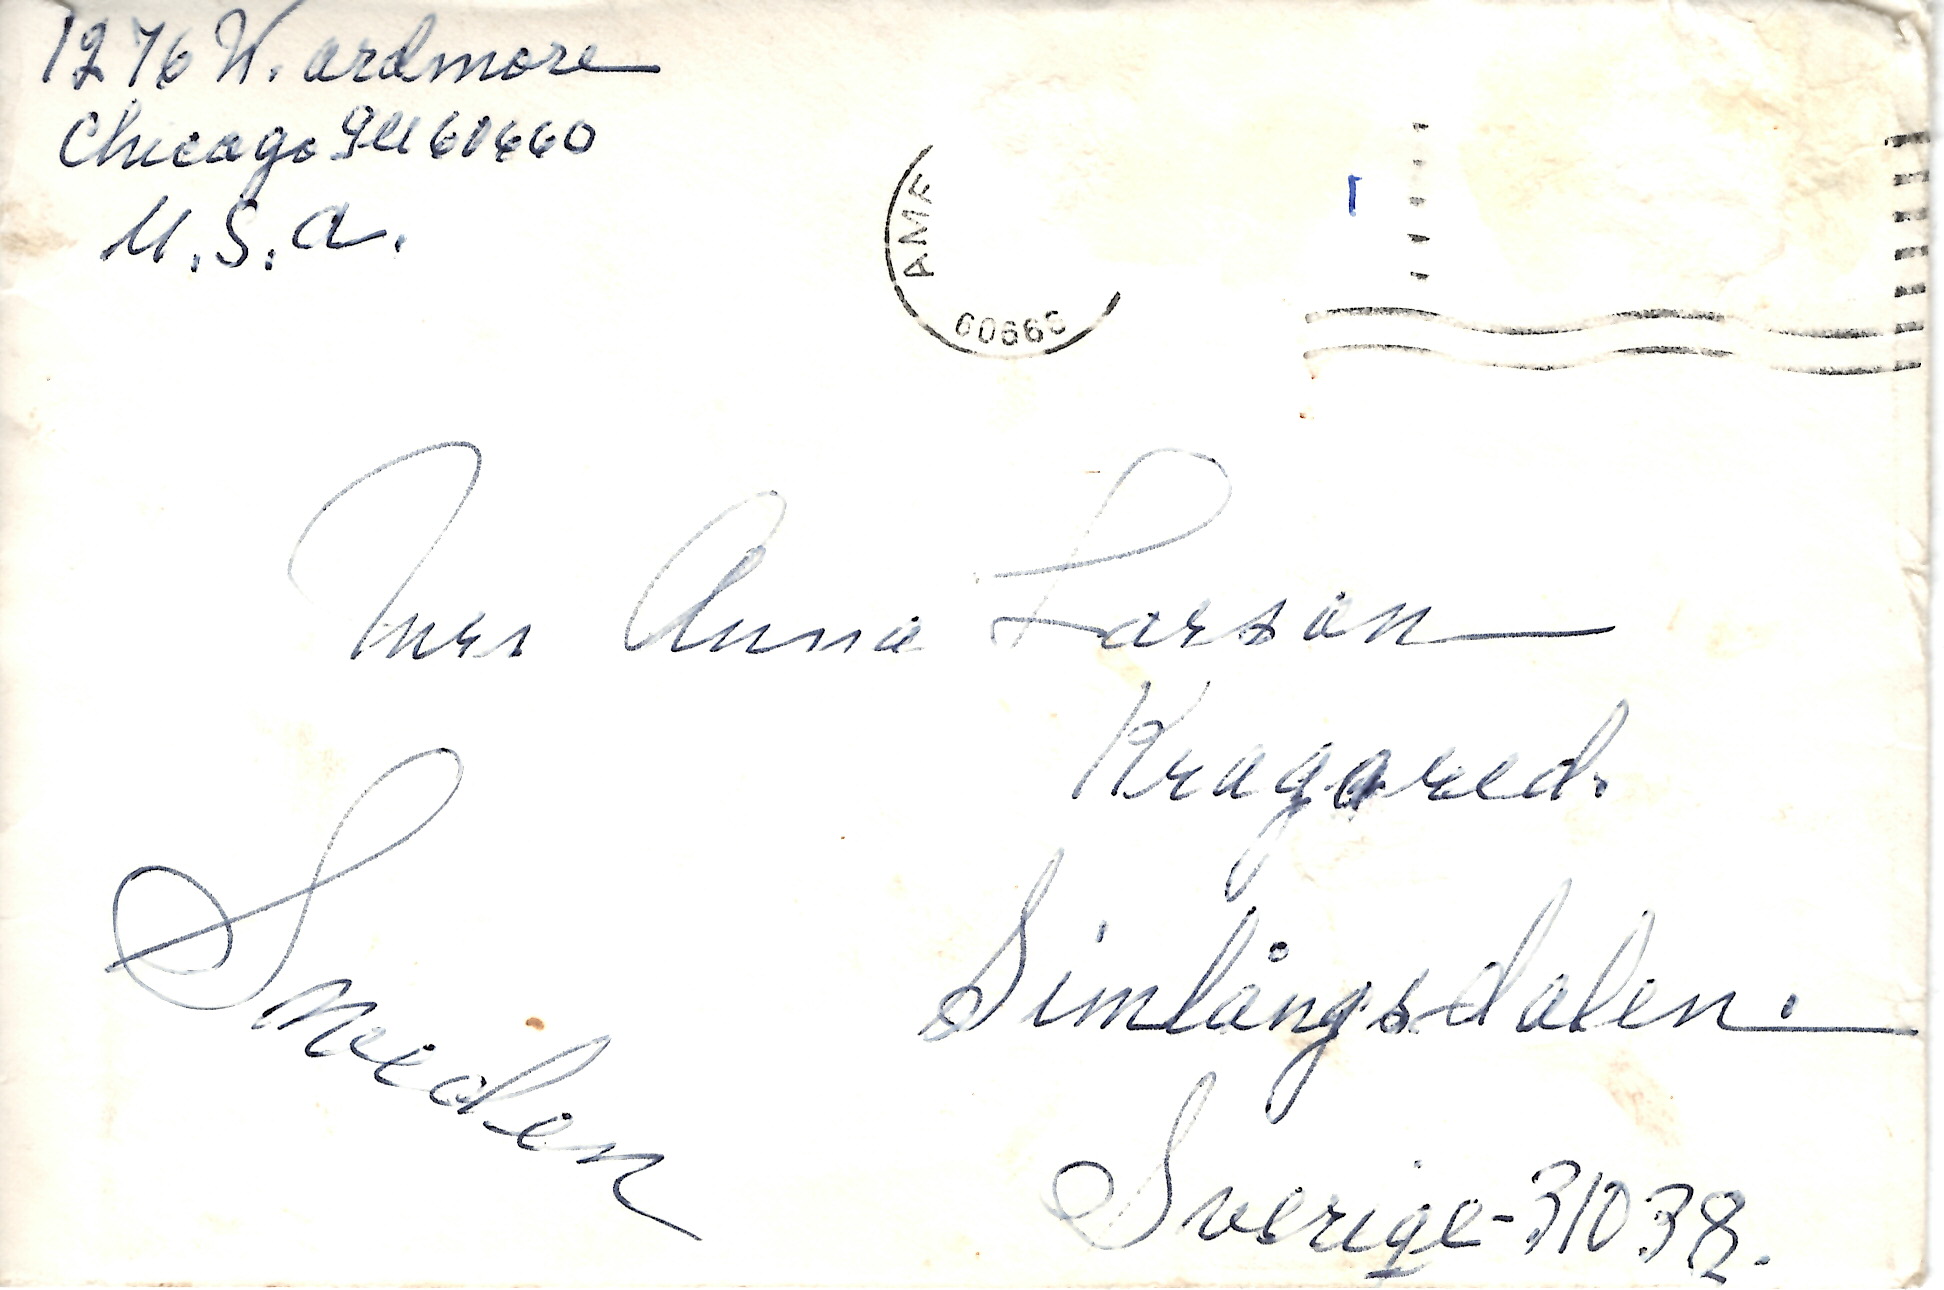 1276 W. ardmore
Chicago Ill 60660
U.S.a.
AMF
60666
Mrs Anna Larson
Kragared.
Simlångsdalen.
Sweden
Sverige-31038.